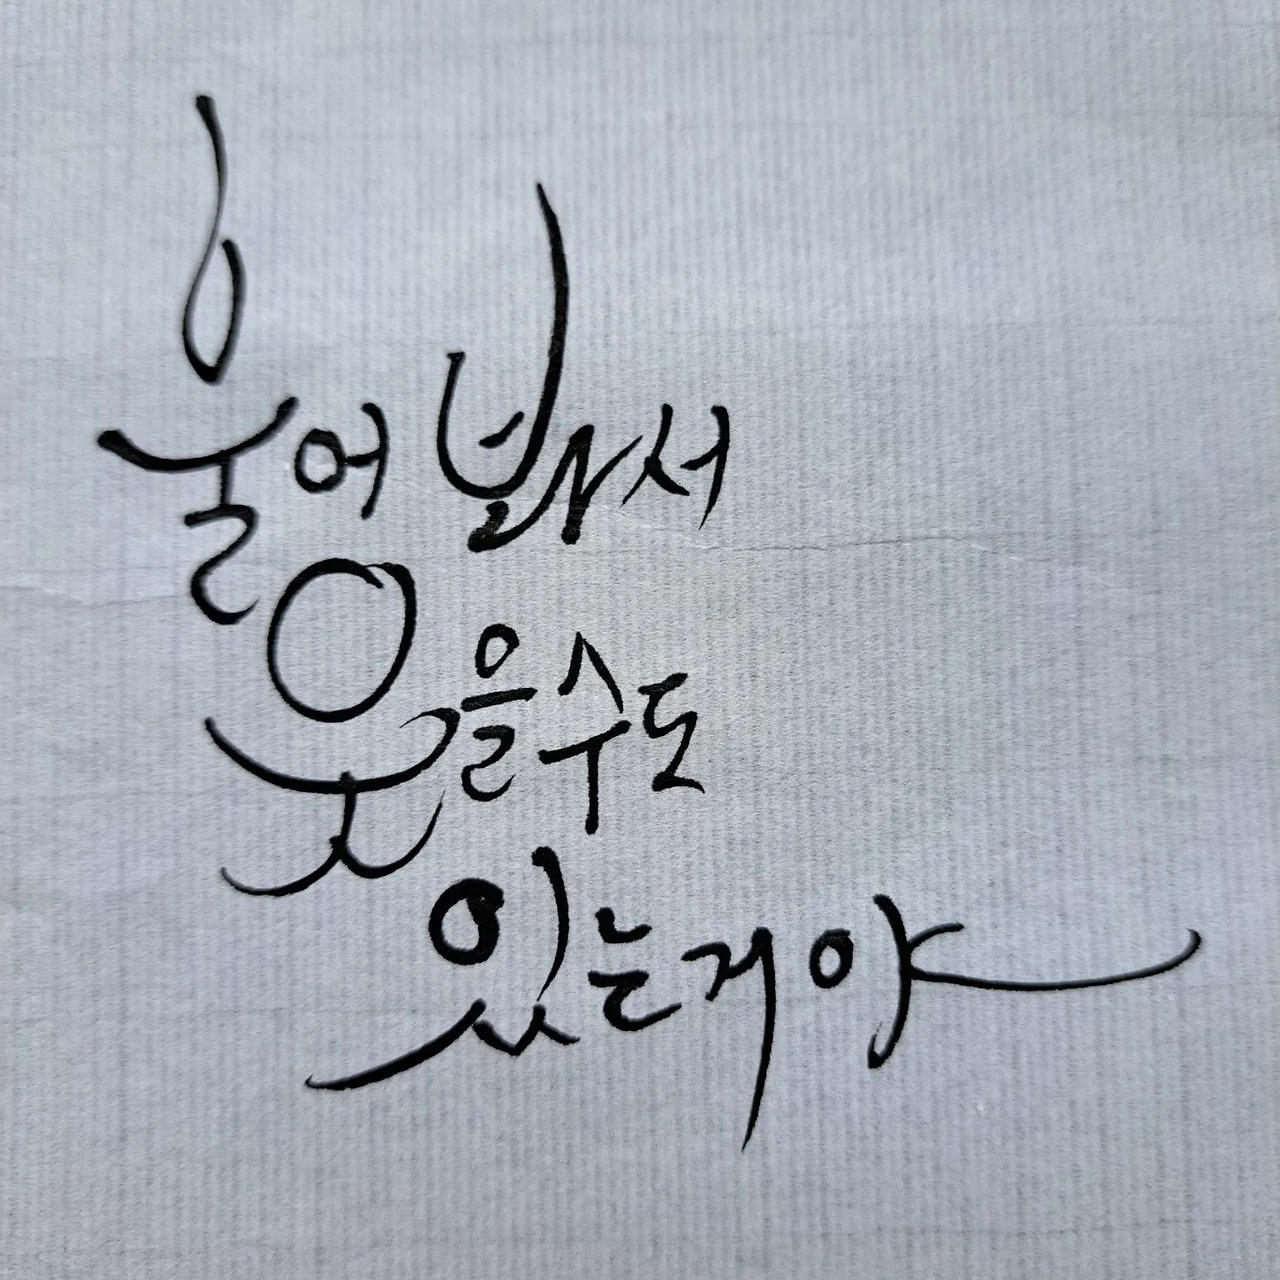 울어 봐서
웃을수도
있는게야